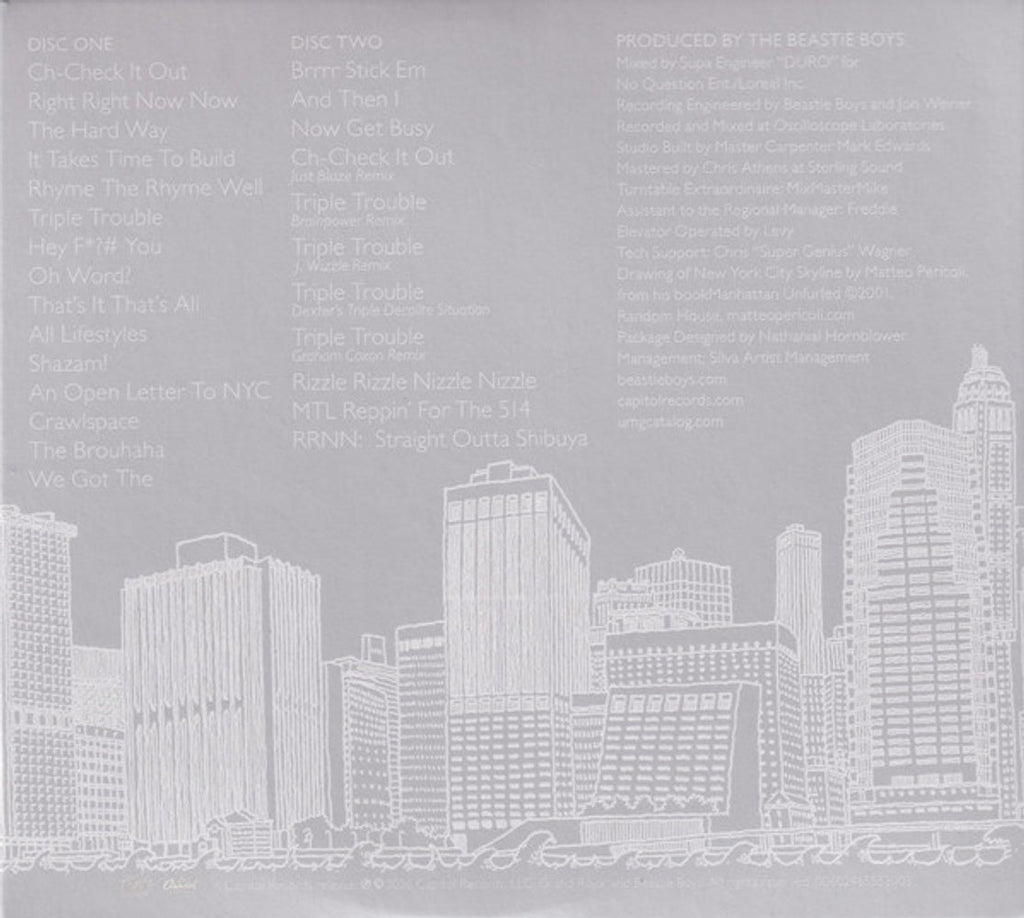 DISC ONE
Ch-Check It Out
Right Right Now Now
The Hard Way
It Takes Time To Build
Rhyme The Rhyme Well
Triple Trouble
Hey F*?# You
Oh Word?
That's It That's All
All Lifestyles
Shazam!
An Open Letter To NYC
Crawlspace
The Brouhaha
We Got The
DISC TWO
Brrrr Stick Em
And Then I
Now Get Busy
Ch-Check It Out
Just Blaze Remix
Triple Trouble
Brainpower Remix
Triple Trouble
J. Wizzle Remix
Triple Trouble
Dexter's Triple Decalite Situation
Triple Trouble
Graham Coxon Remix
Rizzle Rizzle Nizzle Nizzle
MTL Reppin' For The 514
RRNN: Straight Outta Shibuya
PRODUCED BY THE BEASTIE BOYS
Mixed by Supa Engineer "DURO" for
No Question Ent./Loreal Inc.
Recording Engineered by Beastie Boys and Jon Weiner
Recorded and Mixed at Oscilloscope Laboratories
Studio Built by Master Carpenter Mark Edwards
Mastered by Chris Athens at Sterling Sound
Turntable Extraordinaire: MixMasterMike
Assistant to the Regional Manager: Freddie
Elevator Operated by Levy
Tech Support: Chris "Super Genius" Wagner
Drawing of New York City Skyline by Matteo Pericoli,
from his bookManhattan Unfurled ©2001,
Random House, matteopericoli.com
Package Designed by Nathanial Hornblower
Management: Silva Artist Management
beastieboys.com
capitolrecords.com
umgcatalog.com
Capitol Records ℗ © Capitol Records, LLC, Grand Royal and Beastie Boys. All rights reserved.